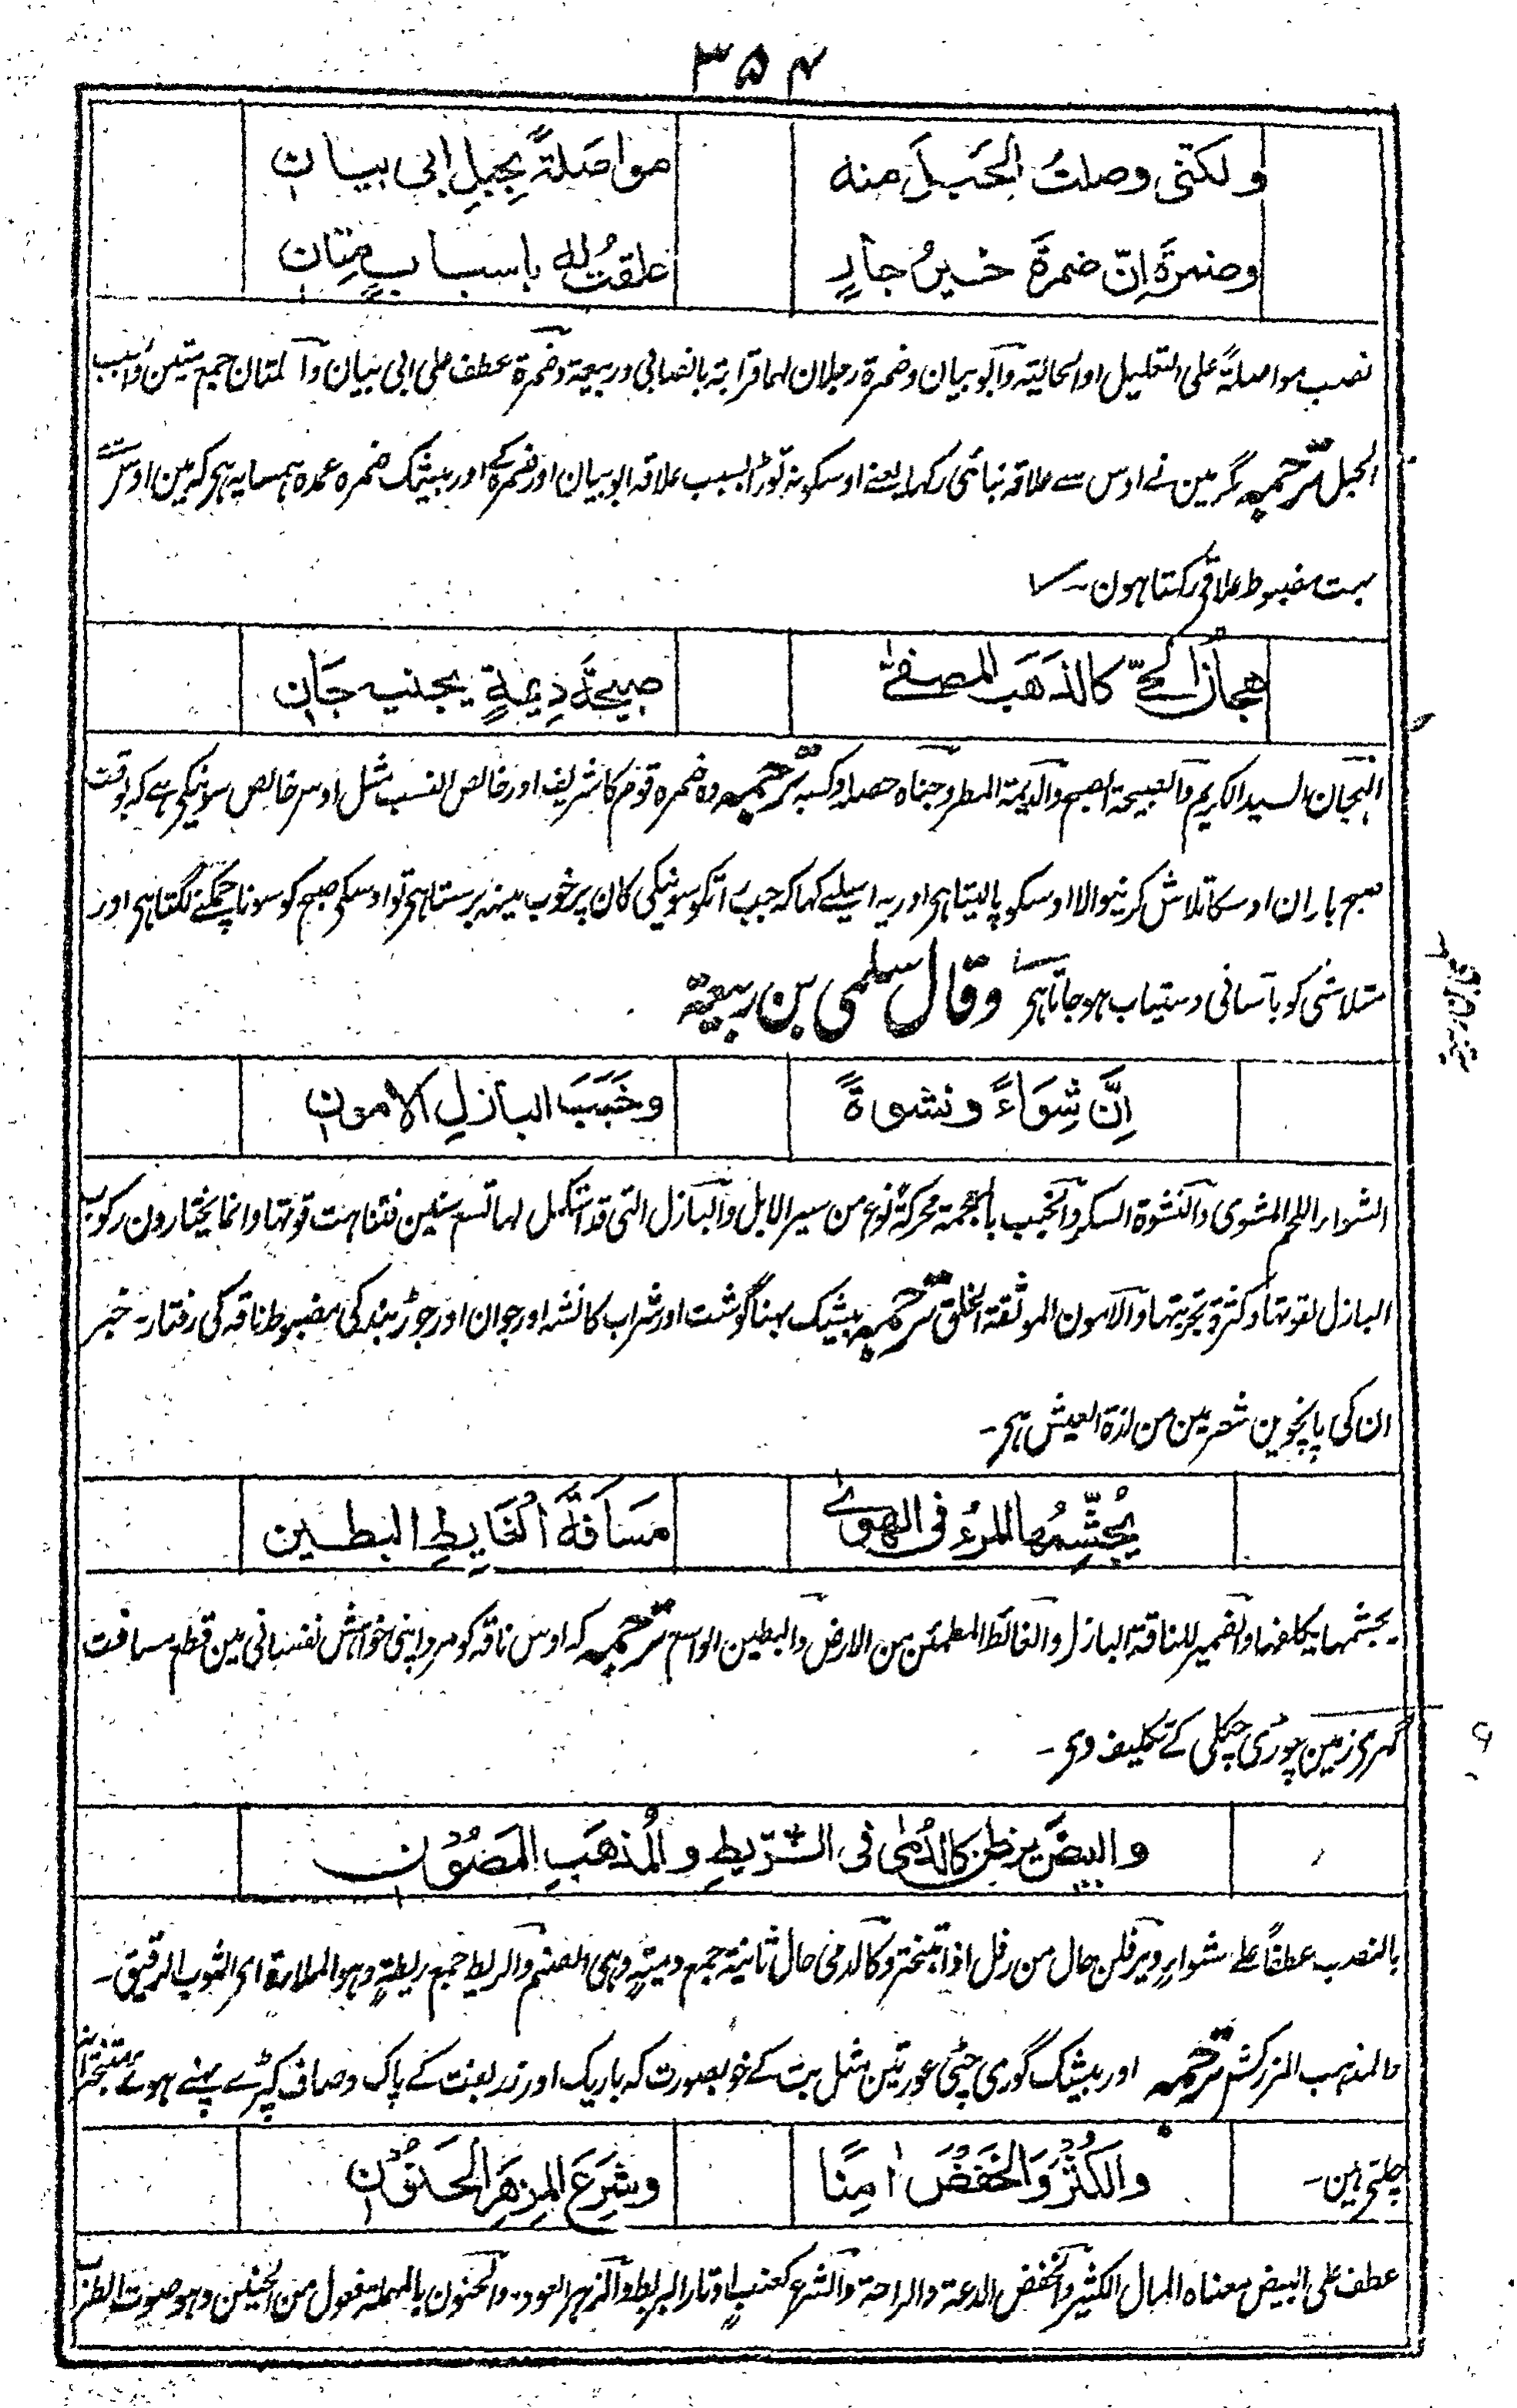 ۳۵۴
ولكنّى وصلتُ الحَبلَ منه مواصَلةً بِحبلِ ابى بيان
وضمرةَ اِنّ ضمرةَ خيرُ جارٍ علقتُ له باسبابٍ متان
نصب مواصلةً على التعليل او الحالية وآبو بيان وضمرة رجلان لهما قرابة بالنصابى وربيعة وضمرة عطف على ابى بيان وآلمتان جمع متين والسبب
الحبل ترجمہ مگر مین نے اوس سے علاقہ بنائی رکہا یعنے اوسکو نہ توڑا بسبب علاقہ ابو بیان اور ضمرہ کے اور بیشک ضمرہ عمدہ ہمسایہ ہی کہ مین اوس سے
بہت مضبوط علاقی رکہتا ہون۔
هجانُ الحىّ كالذهَب المصفىّٰ صبيحةَ ديمةٍ يجنيه جَان
الہجان السید الکریم وآلصبیحۃ الصبح والدیمۃ المطر وجناہ حصلہ وکسبہ ترجمہ وہ ضمرہ قوم کا شریف اور خالص النسب مثل اوس خالص سونیکی ہے کہ بوقت
صبح باران اوسکا تلاش کرنیوالا اوسکو پالیتا ہی اور یہ اسیلیے کہا کہ جب راتکو سونیکی کان پر خوب مینہ برستا ہی تو اوسکی صبح کو سونا چمکنے لگتا ہی اور
متلاشی کو بآسانی دستیاب ہو جاتا ہی وقال سلمى بن ربيعة
اِنَّ شِوَاءً ونشوةً وخَبَبَ البازلِ الامون
الشواء اللحم المشوی والنشوة السكر والخبب بالمعجمة محركة نوع من سير الابل والبازل التى قد استكمل لها تسع سنين فتناهت قوتها وانما يختارون ركوب
البازل لقوتها وكثرة تجربتها والامون الموثقة الخلق ترجمہ بیشک بہنا گوشت اور شراب کا نشہ اور جوان اور جوڑ بند کی مضبوط ناقہ کی رفتار۔ خبر
ان کی پانچوین شعر مین من لذة العیش ہی۔
يُجشِّمُها المرءُ فى الهوىٰ مَسَافةَ الغَايِطِ البطين
یجشمہا یکلفہا والضمیر للناقۃ البازل والغائط المطمئن من الارض والبطین الواسع ترجمہ کہ اوس ناقہ کو مرد اپنی خواہش نفسانی مین قطع مسافت
گہری زمین چوڑی چکلی کے تکلیف دی۔
والبيضَ يرفلن كالدُمىٰ فى الرّيطِ والمُذهَبِ المَصُوْن
بالنصب عطفاً على شواء ويرفلن حال من رفل اذا تبختر وكالدمى حال ثانية جمع دمية وهى الصنم والريط جمع ريطة وهو الملاءة اى الثوب الرقيق۔
والمذہب المزرکش ترجمہ اور بیشک گوری چٹی عورتین مثل بت کے خوبصورت کہ باریک اور زربفت کے پاک وصاف کپڑے پہنے ہوئے متبخترانہ
چلتی ہین۔
والكُثْرَ وَالخَفضَ اٰمِنًا وشِرَعَ المِزهَرِ الحَنُوْن
عطف على البيض معناه المال الكثير والخفض الدعة والراحة والشرع كعنب اوتار البربط والمزهر العود والحنون بالمهملة فعول من الحنين وهو صوت الطرب